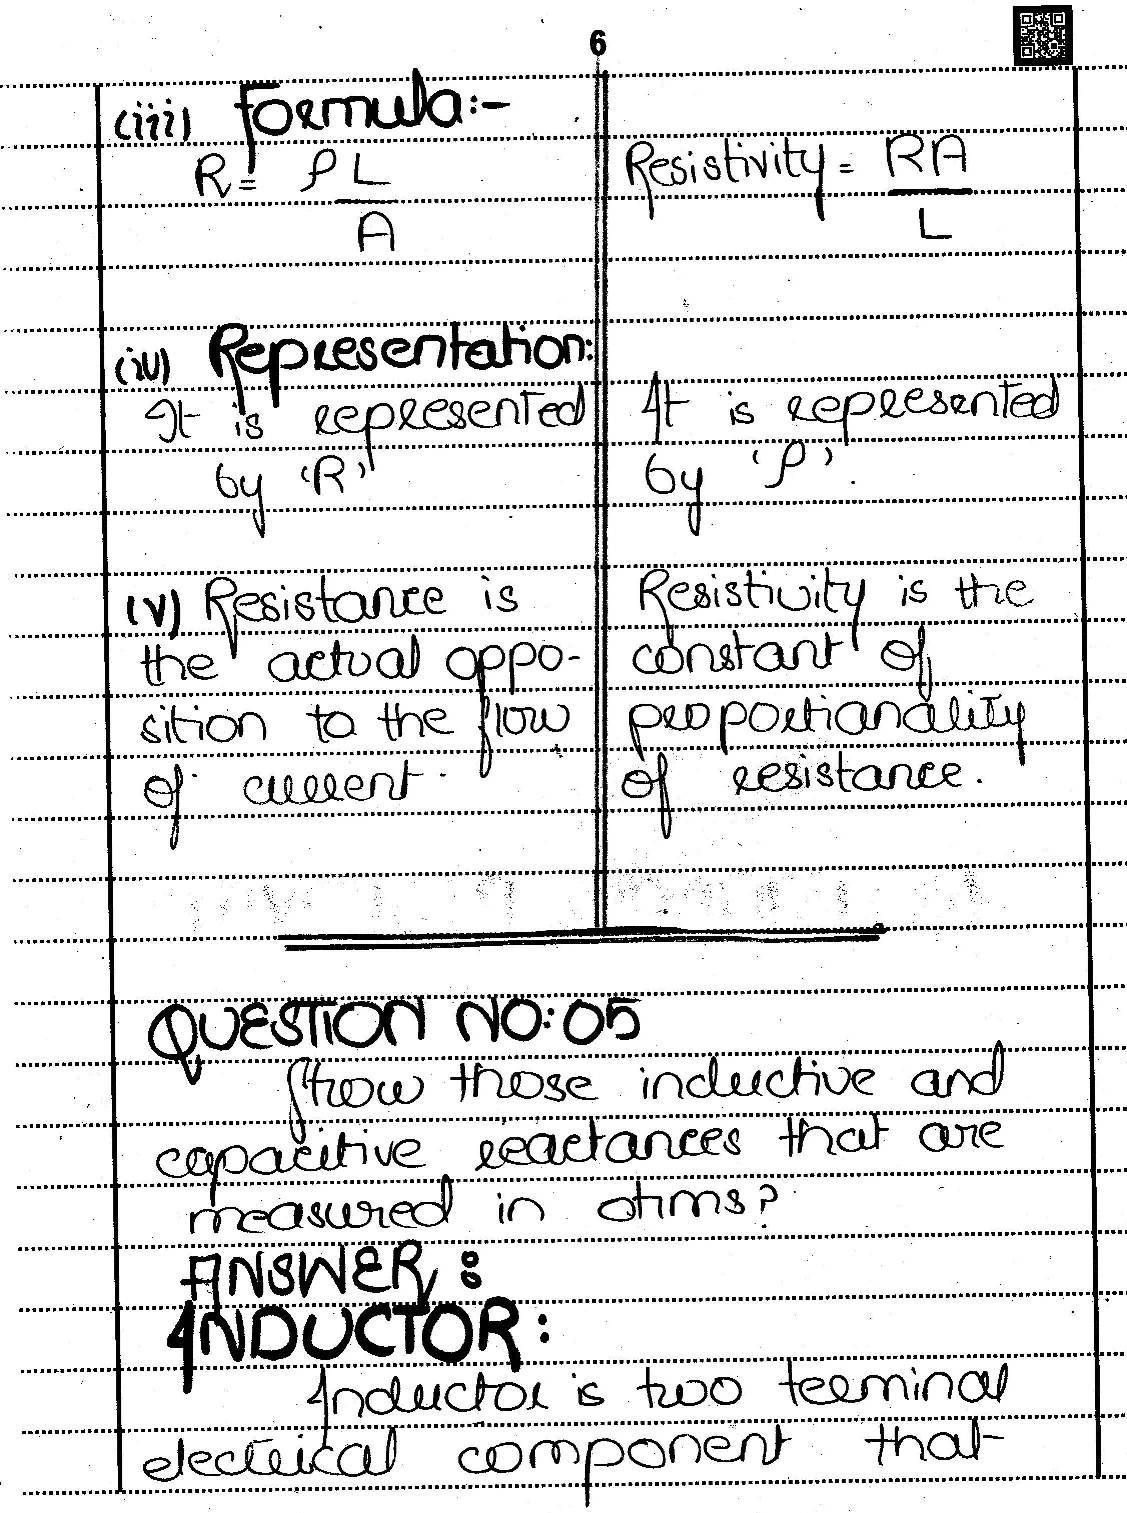 6
(iii) Formula:-
R = ρL
A
Resistivity = RA
L
(iv) Representation:
It is represented
by 'R'
It is represented
by 'ρ'.
(v) Resistance is
the actual oppo-
sition to the flow
of current.
Resistivity is the
constant of
proportionality
of resistance.
QUESTION NO:05
Show those inductive and
capacitive reactances that are
measured in ohms?
ANSWER:
INDUCTOR:
Inductor is two terminal
electrical component that